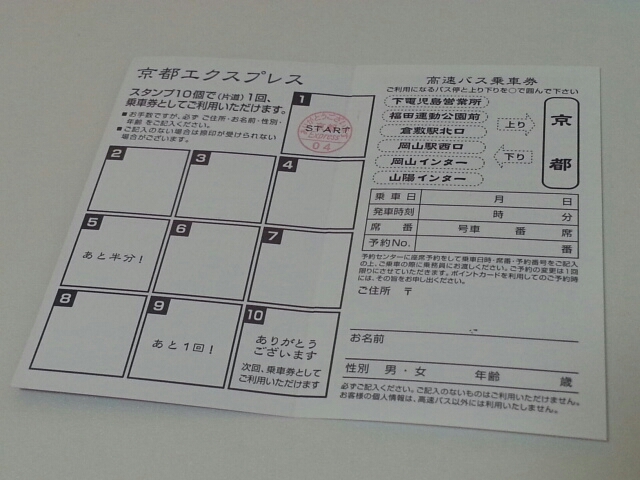 京都エクスプレス
スタンプ10個で(片道)1回、
乗車券としてご利用いただけます。
■お手数ですが、必ず ご住所・お名前・性別・
年齢 をご記入ください。
■ご記入のない場合は捺印が受けられない
場合がございます。
1
START
04
2
3
4
5
あと半分！
6
7
8
9
あと1回！
10
ありがとう
ございます
次回、乗車券として
ご利用いただけます
高速バス乗車券
ご利用になるバス停と上り下りを○で囲んで下さい
下電児島営業所
福田運動公園前
倉敷駅北口
岡山駅西口
岡山インター
山陽インター
上り
下り
京都
乗車日 月 日
発車時刻 時 分
席番 号車 番 席
予約No. 番
予約センターに座席予約をして乗車日時・席番・予約番号をご記入
の上、ご乗車の際に乗務員にお渡しください。ご予約の変更は1回
限りにさせていただきます。ポイントカードを利用してのご予約時
には、その旨をお申し出ください。
ご住所 〒
お名前
性別 男・女 年齢 歳
必ずご記入ください。ご記入のないものはご利用できません。
お客様の個人情報は、高速バス以外には利用いたしません。